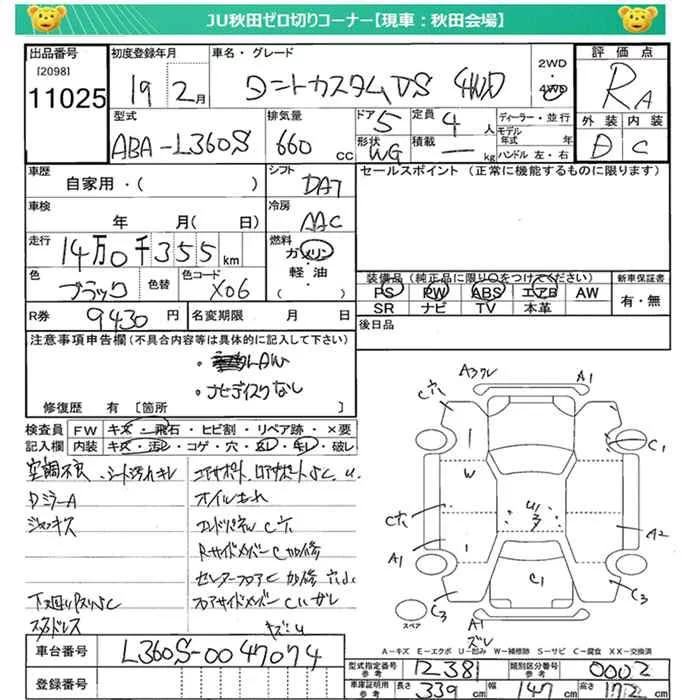 JU秋田ゼロ切りコーナー【現車：秋田会場】
出品番号
[2098]
11025
初度登録年月
19 2月
車名・グレード
タントカスタムVS 4WD
2WD
4WD
評価点
RA
外装 内装
D C
型式
ABA-L360S
排気量
660 cc
ドア 5
形状 WG
定員 4 人
積載 — kg
ディーラー・並行
モデル年式 年
ハンドル 左・右
車歴
自家用・( )
シフト
DAT
セールスポイント (正常に機能するものに限ります)
車検
年 月( 日)
冷房
AAC
走行
14万0千355km
燃料
ガソリン
軽油
( )
色
ブラック
色替
色コード
X06
装備品(純正品に限り○をつけてください)
PS PW ABS エアB AW
SR ナビ TV 本革
新車保証書
有・無
R券 9430円
名変期限 月 日
後日品
注意事項申告欄(不具合内容等は具体的に記入して下さい)
・ナビディスクなし
修復歴 有 [箇所 ]
検査員記入欄
FW キズ・飛石・ヒビ割・リペア跡・×要
内装 キズ・汚レ・コゲ・穴・スレ・キレ・破レ
空調不良
DミラーA
ジャッキ欠
オイルもれ
エンドパネルC穴
RサイドメンバーC加修
センターフロアC加修 穴
キズ・U
A3ワレ
A1
C穴
C1
W
C穴
A2
A1
C1
C3
C3
A1
ズレ
スペア
A−キズ E−エクボ U−凹み W−補修跡 S−サビ C−腐食 XX−交換済
車台番号
L360S-0047074
登録番号
型式指定番号 参考
12381
類別区分番号 参考
0002
車庫証明用 参考
長さ 339cm
幅 147cm
高さ 172cm